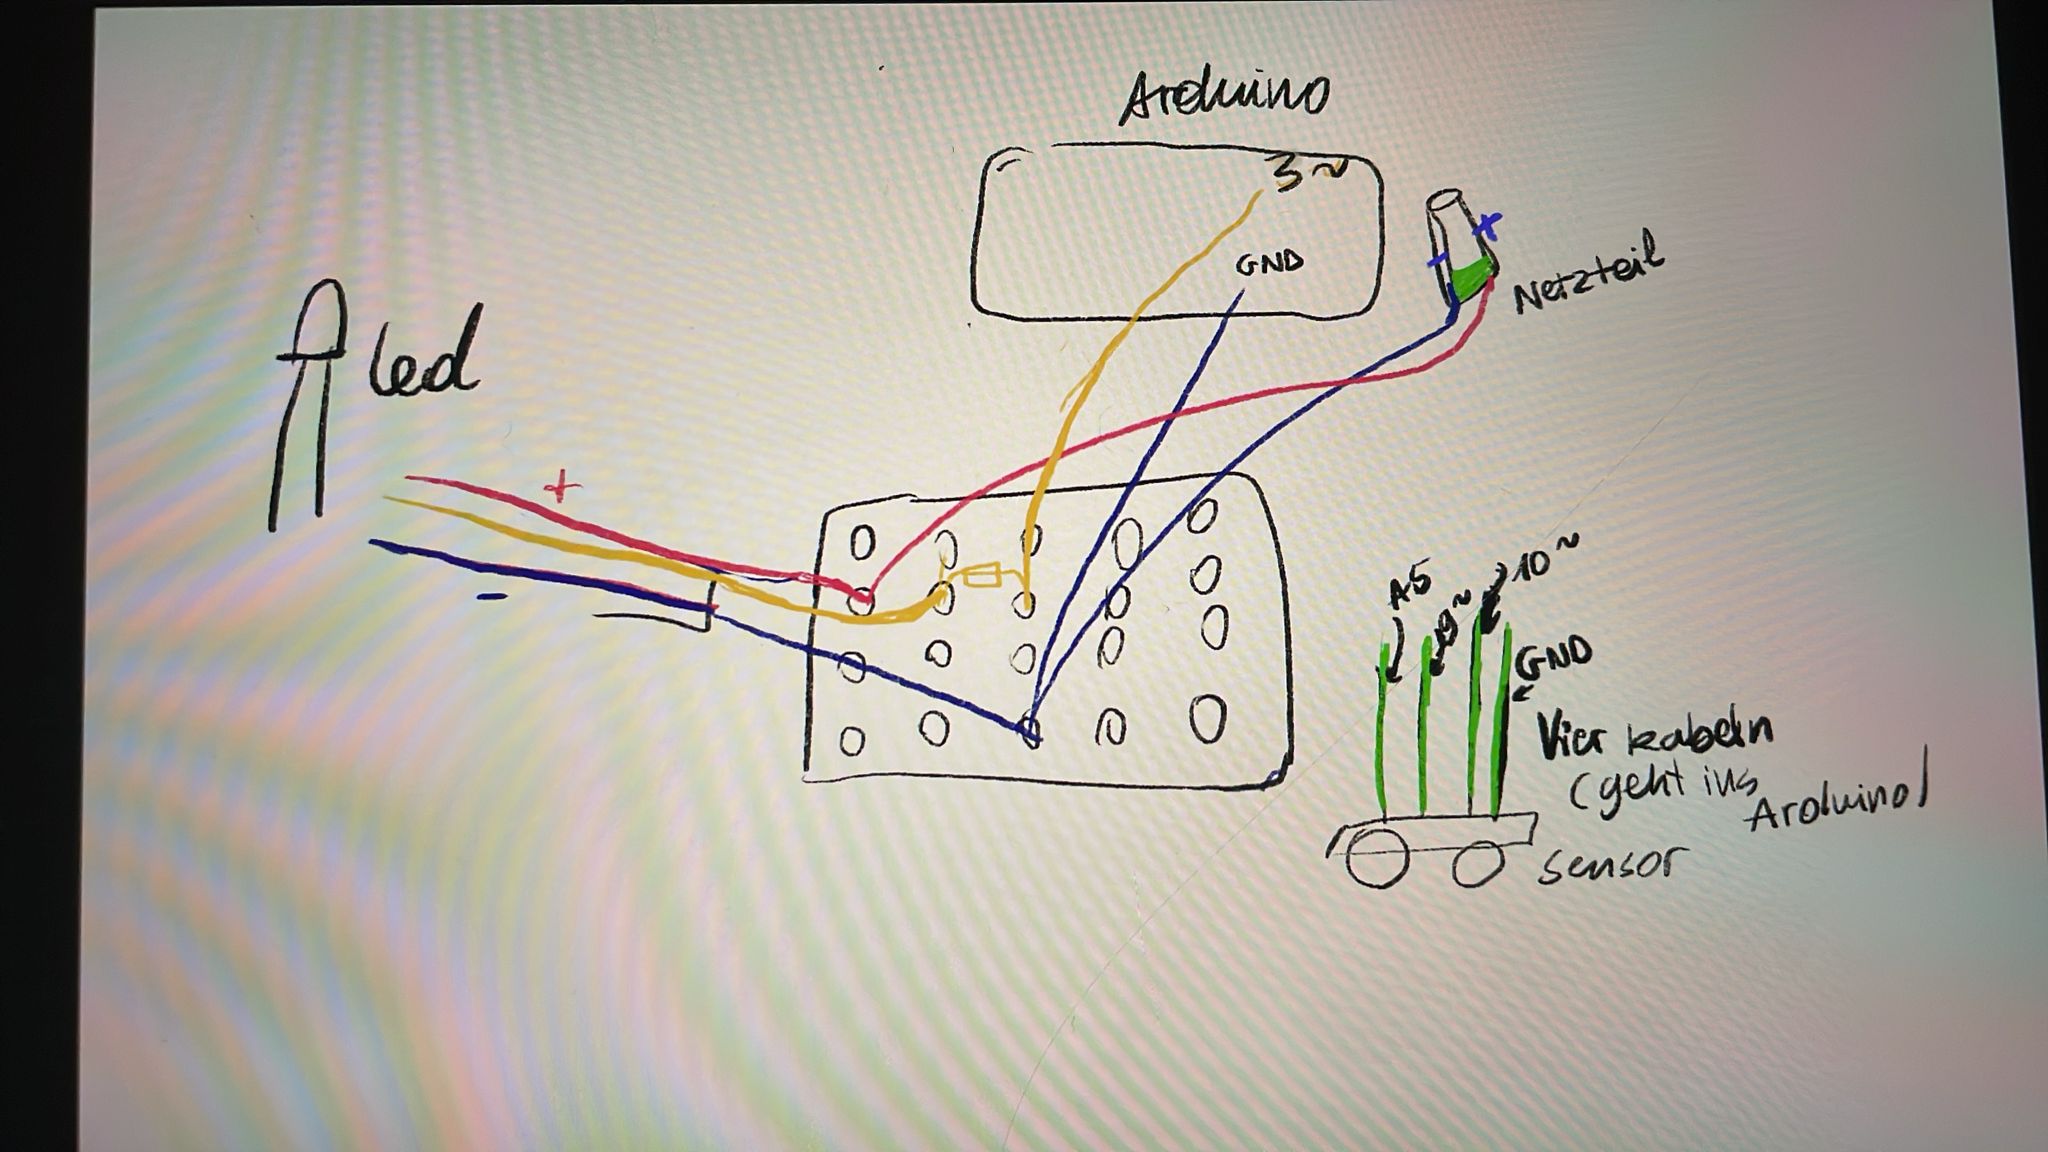 Arduino
3~
GND
+
-
Netzteil
led
+
-
A5
10~
GND
Vier kabeln
(geht ins
Arduino)
sensor